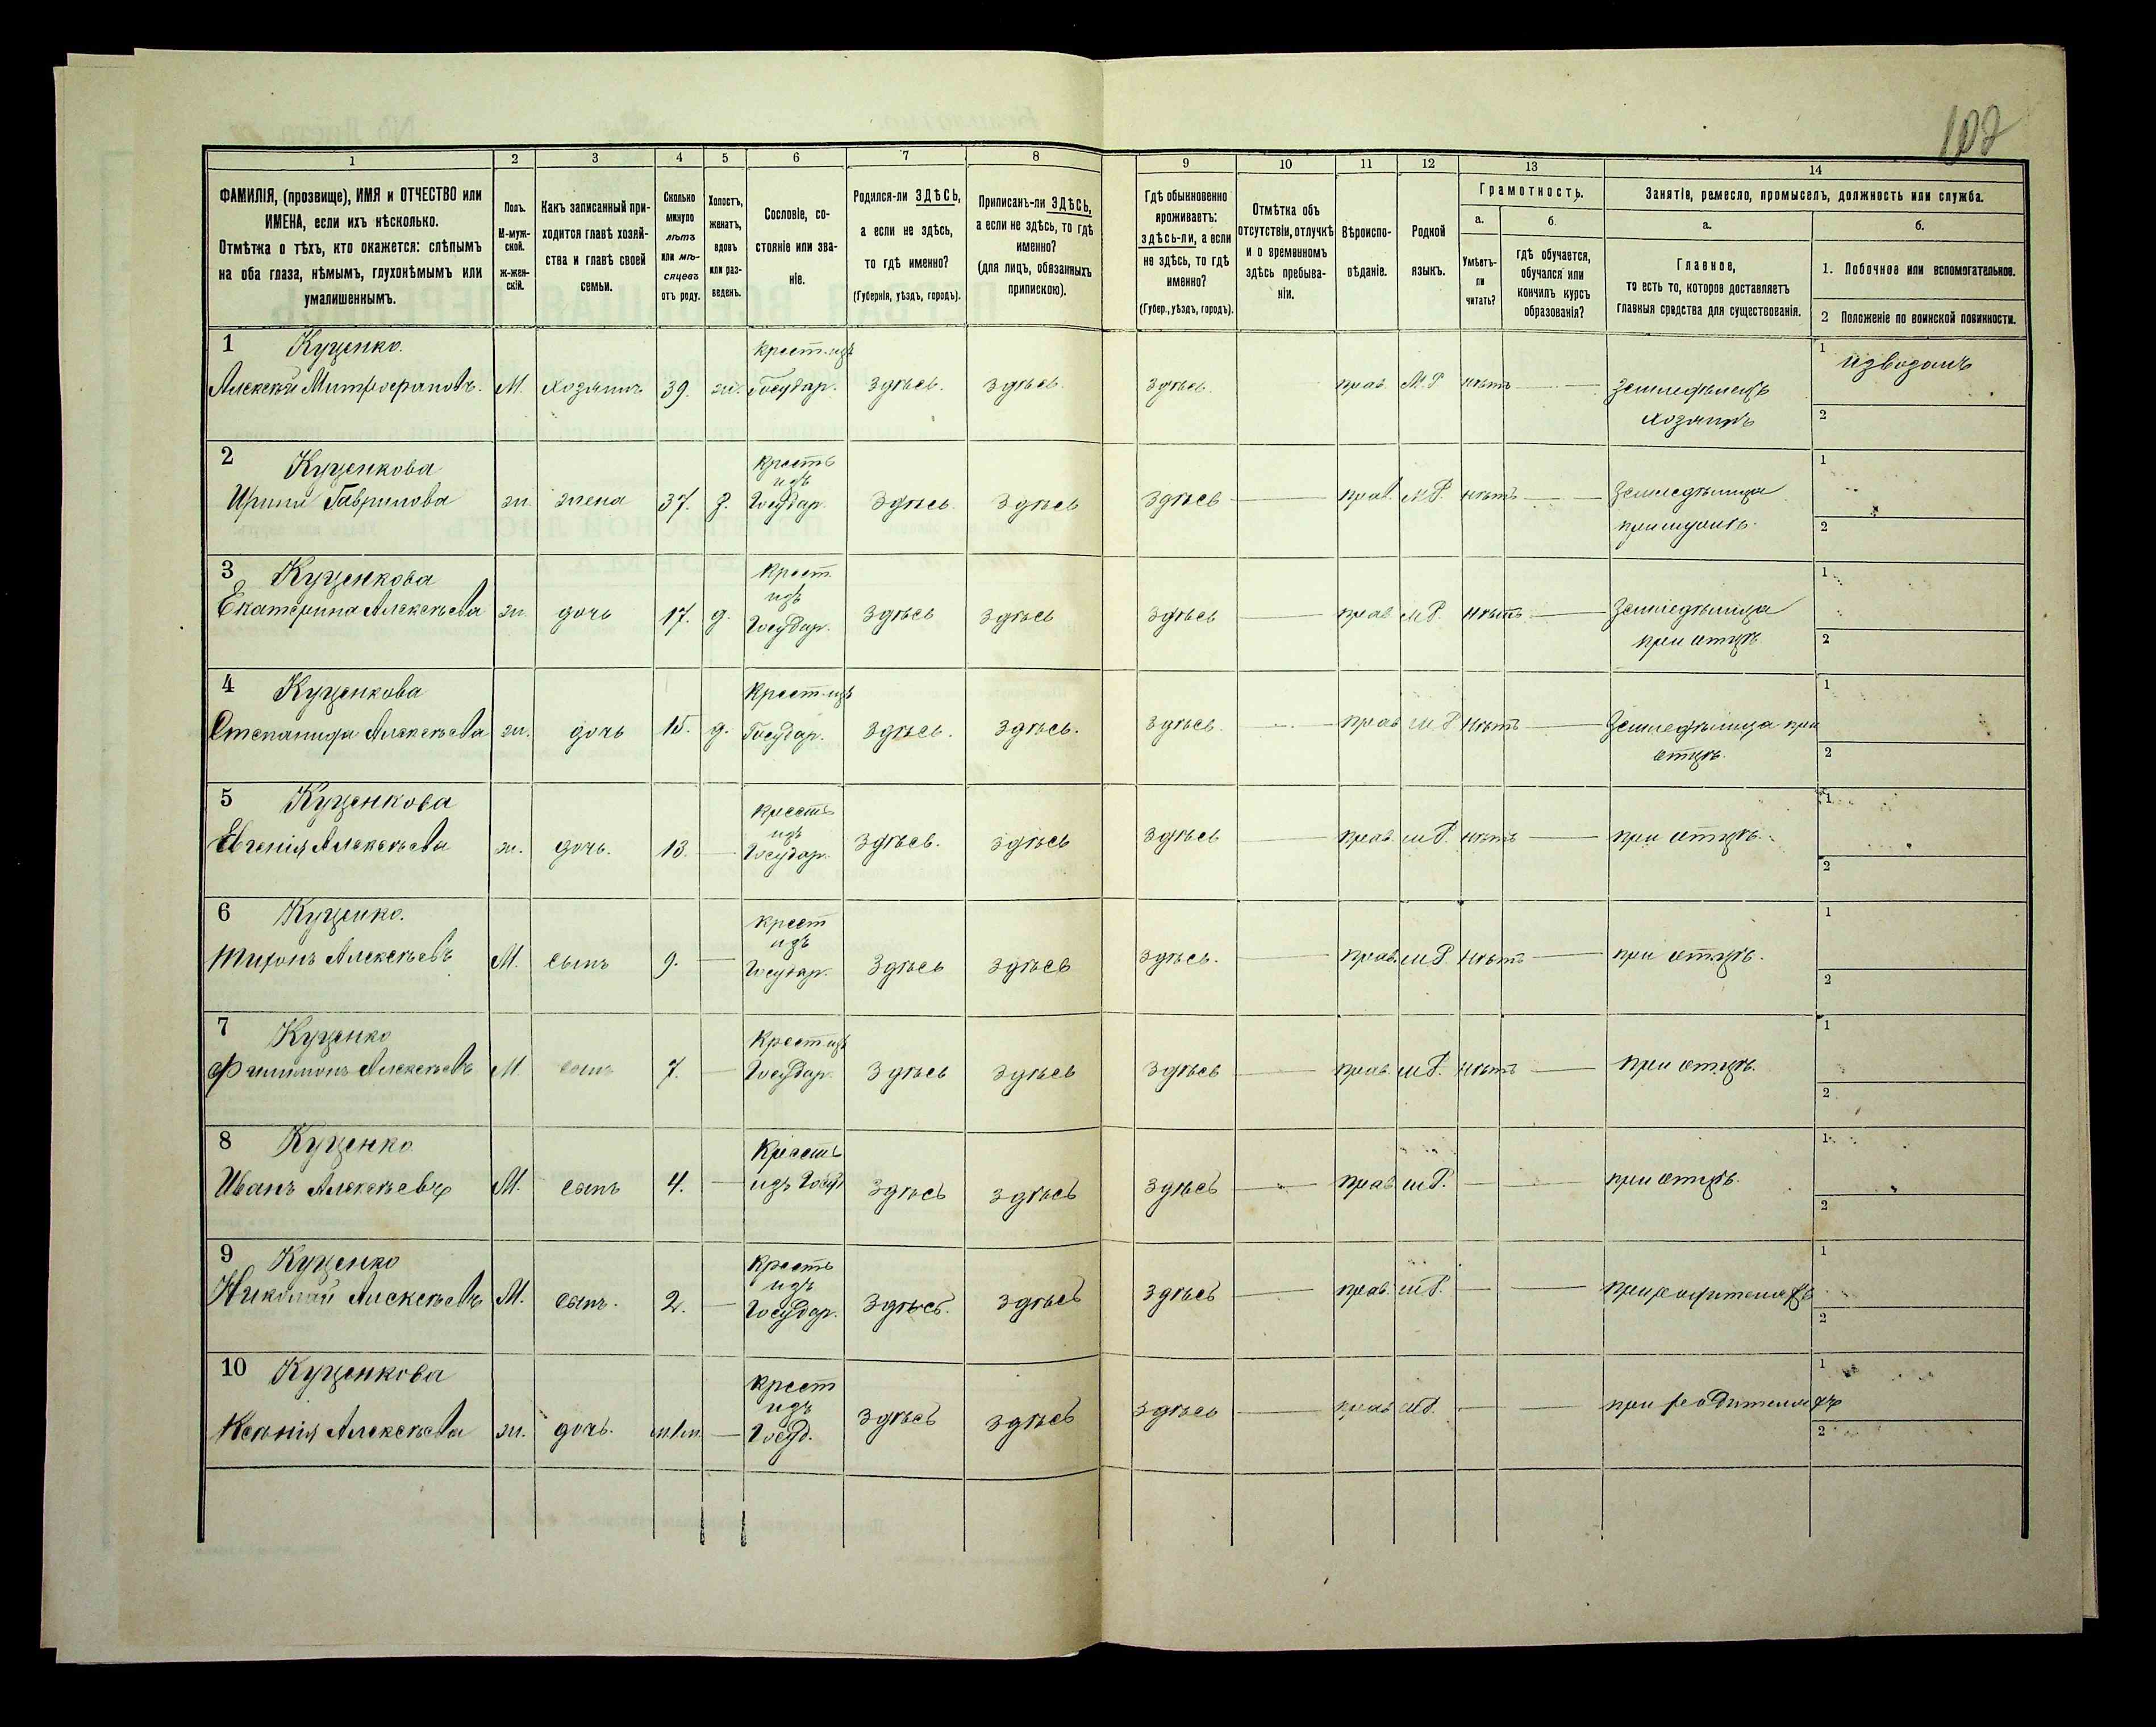 107
1 2 3 4 5 6 7 8 9 10 11 12 13 14
ФАМИЛІЯ, (прозвище), ИМЯ и ОТЧЕСТВО или
ИМЕНА, если ихъ нѣсколько.
Отмѣтка о тѣхъ, кто окажется: слѣпымъ
на оба глаза, нѣмымъ, глухонѣмымъ или
умалишеннымъ.
Полъ.
М-муж-
ской.
ж-жен-
скій.
Какъ записанный при-
ходится главѣ хозяй-
ства и главѣ своей
семьи.
Сколько
минуло
лѣтъ
или мѣ-
сяцевъ
отъ роду.
Холостъ,
женатъ,
вдовъ
или раз-
веденъ.
Сословіе, со-
стояніе или зва-
ніе.
Родился-ли ЗДѢСЬ,
а если не здѣсь,
то гдѣ именно?
(Губернія, уѣздъ, городъ).
Приписанъ-ли ЗДѢСЬ,
а если не здѣсь, то гдѣ
именно?
(для лицъ, обязанныхъ
припискою).
Гдѣ обыкновенно
проживаетъ:
здѣсь-ли, а если
не здѣсь, то гдѣ
именно?
(Губер., уѣздъ, городъ).
Отмѣтка объ
отсутствіи, отлучкѣ
и о временномъ
здѣсь пребыва-
ніи.
Вѣроиспо-
вѣданіе.
Родной
языкъ.
Грамотность.
а.
Умѣетъ-
ли
читать?
б.
гдѣ обучается,
обучался или
кончилъ курсъ
образованія?
Занятіе, ремесло, промыселъ, должность или служба.
а.
Главное,
то есть то, которое доставляетъ
главныя средства для существованія.
б.
1. Побочное или вспомогательное.
2 Положеніе по воинской повинности.
1 Куценко. Крест. изъ 1 извозомъ
Алексѣй Митрофановъ. М. хозяинъ 39. ж. Государ. здѣсь. здѣсь. здѣсь. прав. М.Р нѣтъ земледѣлецъ
хозяинъ 2
2 Куценкова Крестъ 1
изъ
Ирина Гаврилова ж. жена 37. з. Государ. здѣсь. здѣсь здѣсь прав. М.Р. нѣтъ Земледѣлица
при мужѣ. 2
3 Куценкова Крест. 1
изъ
Екатерина Алексѣева ж. дочь 17. д. Государ. здѣсь здѣсь здѣсь прав. М.Р. нѣтъ Земледѣлица
при отцѣ 2
4 Куценкова Крест. изъ 1
Степанида Алексѣева ж. дочь 15. д. Государ. здѣсь. здѣсь. здѣсь. прав М.Р нѣтъ Земледѣлица при
отцѣ. 2
5 Куценкова Крестъ 1
изъ
Евгенія Алексѣева ж. дочь. 13. Государ. здѣсь. здѣсь здѣсь прав. М.Р. нѣтъ при отцѣ.
2
6 Куценко. Крест 1
изъ
Тихонъ Алексѣевъ М. сынъ 9. Государ. здѣсь здѣсь здѣсь. прав. М.Р. нѣтъ при отцѣ.
2
7 Куценко Крест изъ 1
Филимонъ Алексѣевъ М. сынъ 7. Государ. здѣсь здѣсь здѣсь прав. М.Р. нѣтъ при отцѣ.
2
8 Куценко. Крестъ 1
Иванъ Алексѣевъ М. сынъ 4. изъ Госуд здѣсь здѣсь здѣсь прав М.Р. при отцѣ.
2
9 Куценко Крестъ 1
изъ
Николай Алексѣевъ М. сынъ. 2. Государ. здѣсь. здѣсь здѣсь прав. М.Р. при родителяхъ
2
10 Куценкова Крест 1
изъ
Ксенія Алексѣева ж. дочь. Госуд. здѣсь здѣсь здѣсь прав М.Р. при родителяхъ
2